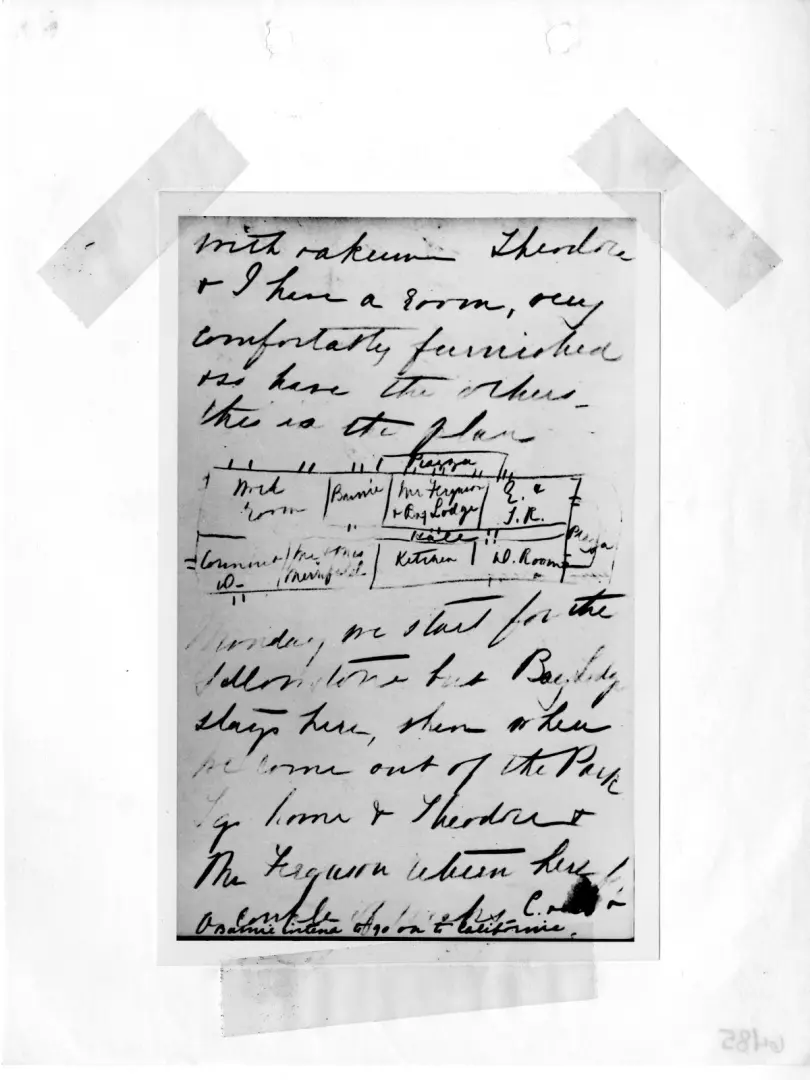 with oakum Theodore
& I have a room, very
comfortably furnished
also have the others -
this is the plan
Piazza
Work
room
Bamie
Mr Ferguson
& Bay Lodge
E. &
T.R.
Piazza
Hall
Corinne &
D-
Mr & Mrs
Merrifield
Kitchen
D. Room
Monday we start for the
Yellowstone but Bay Lodge
stays here, then when
we come out of the Park
I go home & Theodore &
Mr Ferguson return here for
a couple of weeks C. and D
Bamie intend to go on to California.
6485